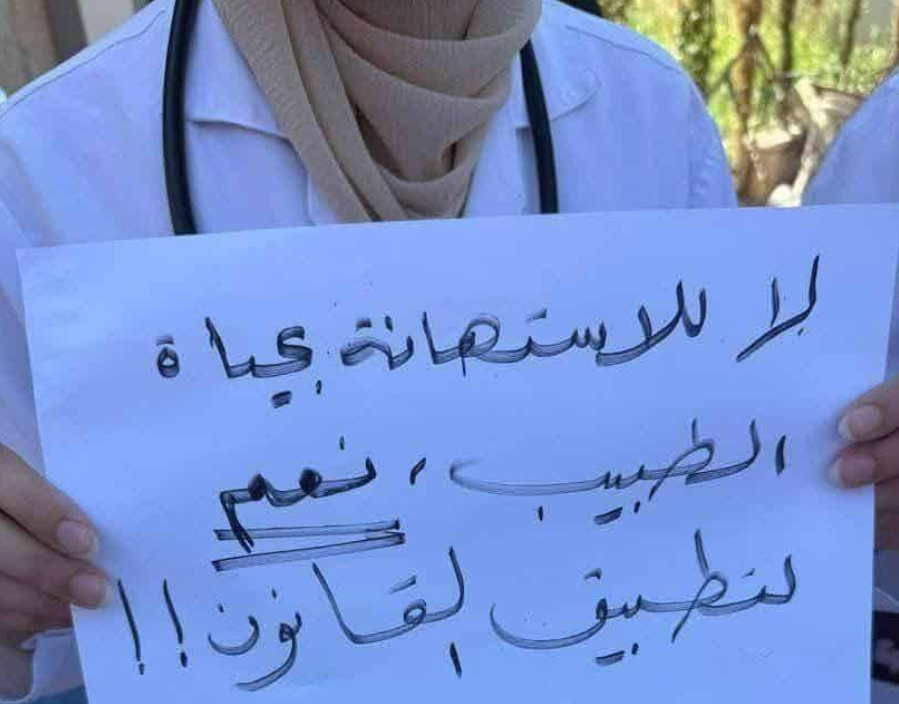 لا للاستهانة بحياة
الطبيب، نعم
لتطبيق القانون!!